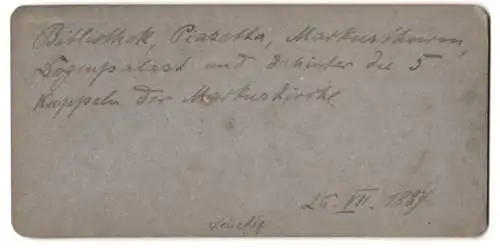 Bibliothek, Piazetta, Markusthurm,
Dogenpalast und dahinter die 5
Kuppeln der Markuskirche
26. VII. 1887
Venedig